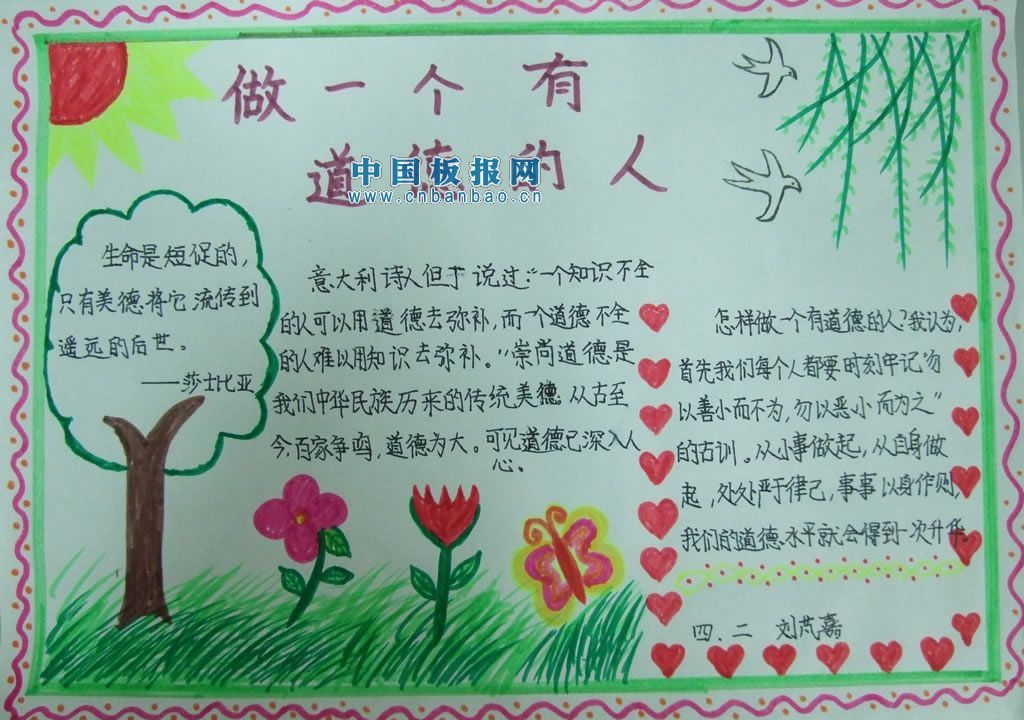 做一个有
道德的人
中国板报网
www.cnbanbao.cn
生命是短促的，
只有美德将它流传到
遥远的后世。
——莎士比亚
意大利诗人但丁说过：“一个知识不全
的人可以用道德去弥补，而一个道德不全
的人难以用知识去弥补。”崇尚道德是
我们中华民族历来的传统美德。从古至
今，百家争鸣，道德为大。可见道德已深入人
心。
怎样做一个有道德的人？我认为，
首先我们每个人都要时刻牢记“勿
以善小而不为，勿以恶小而为之”
的古训。从小事做起，从自身做
起，处处严于律己，事事以身作则，
我们的道德水平就会得到一次升华。
四．二 刘芃嘉